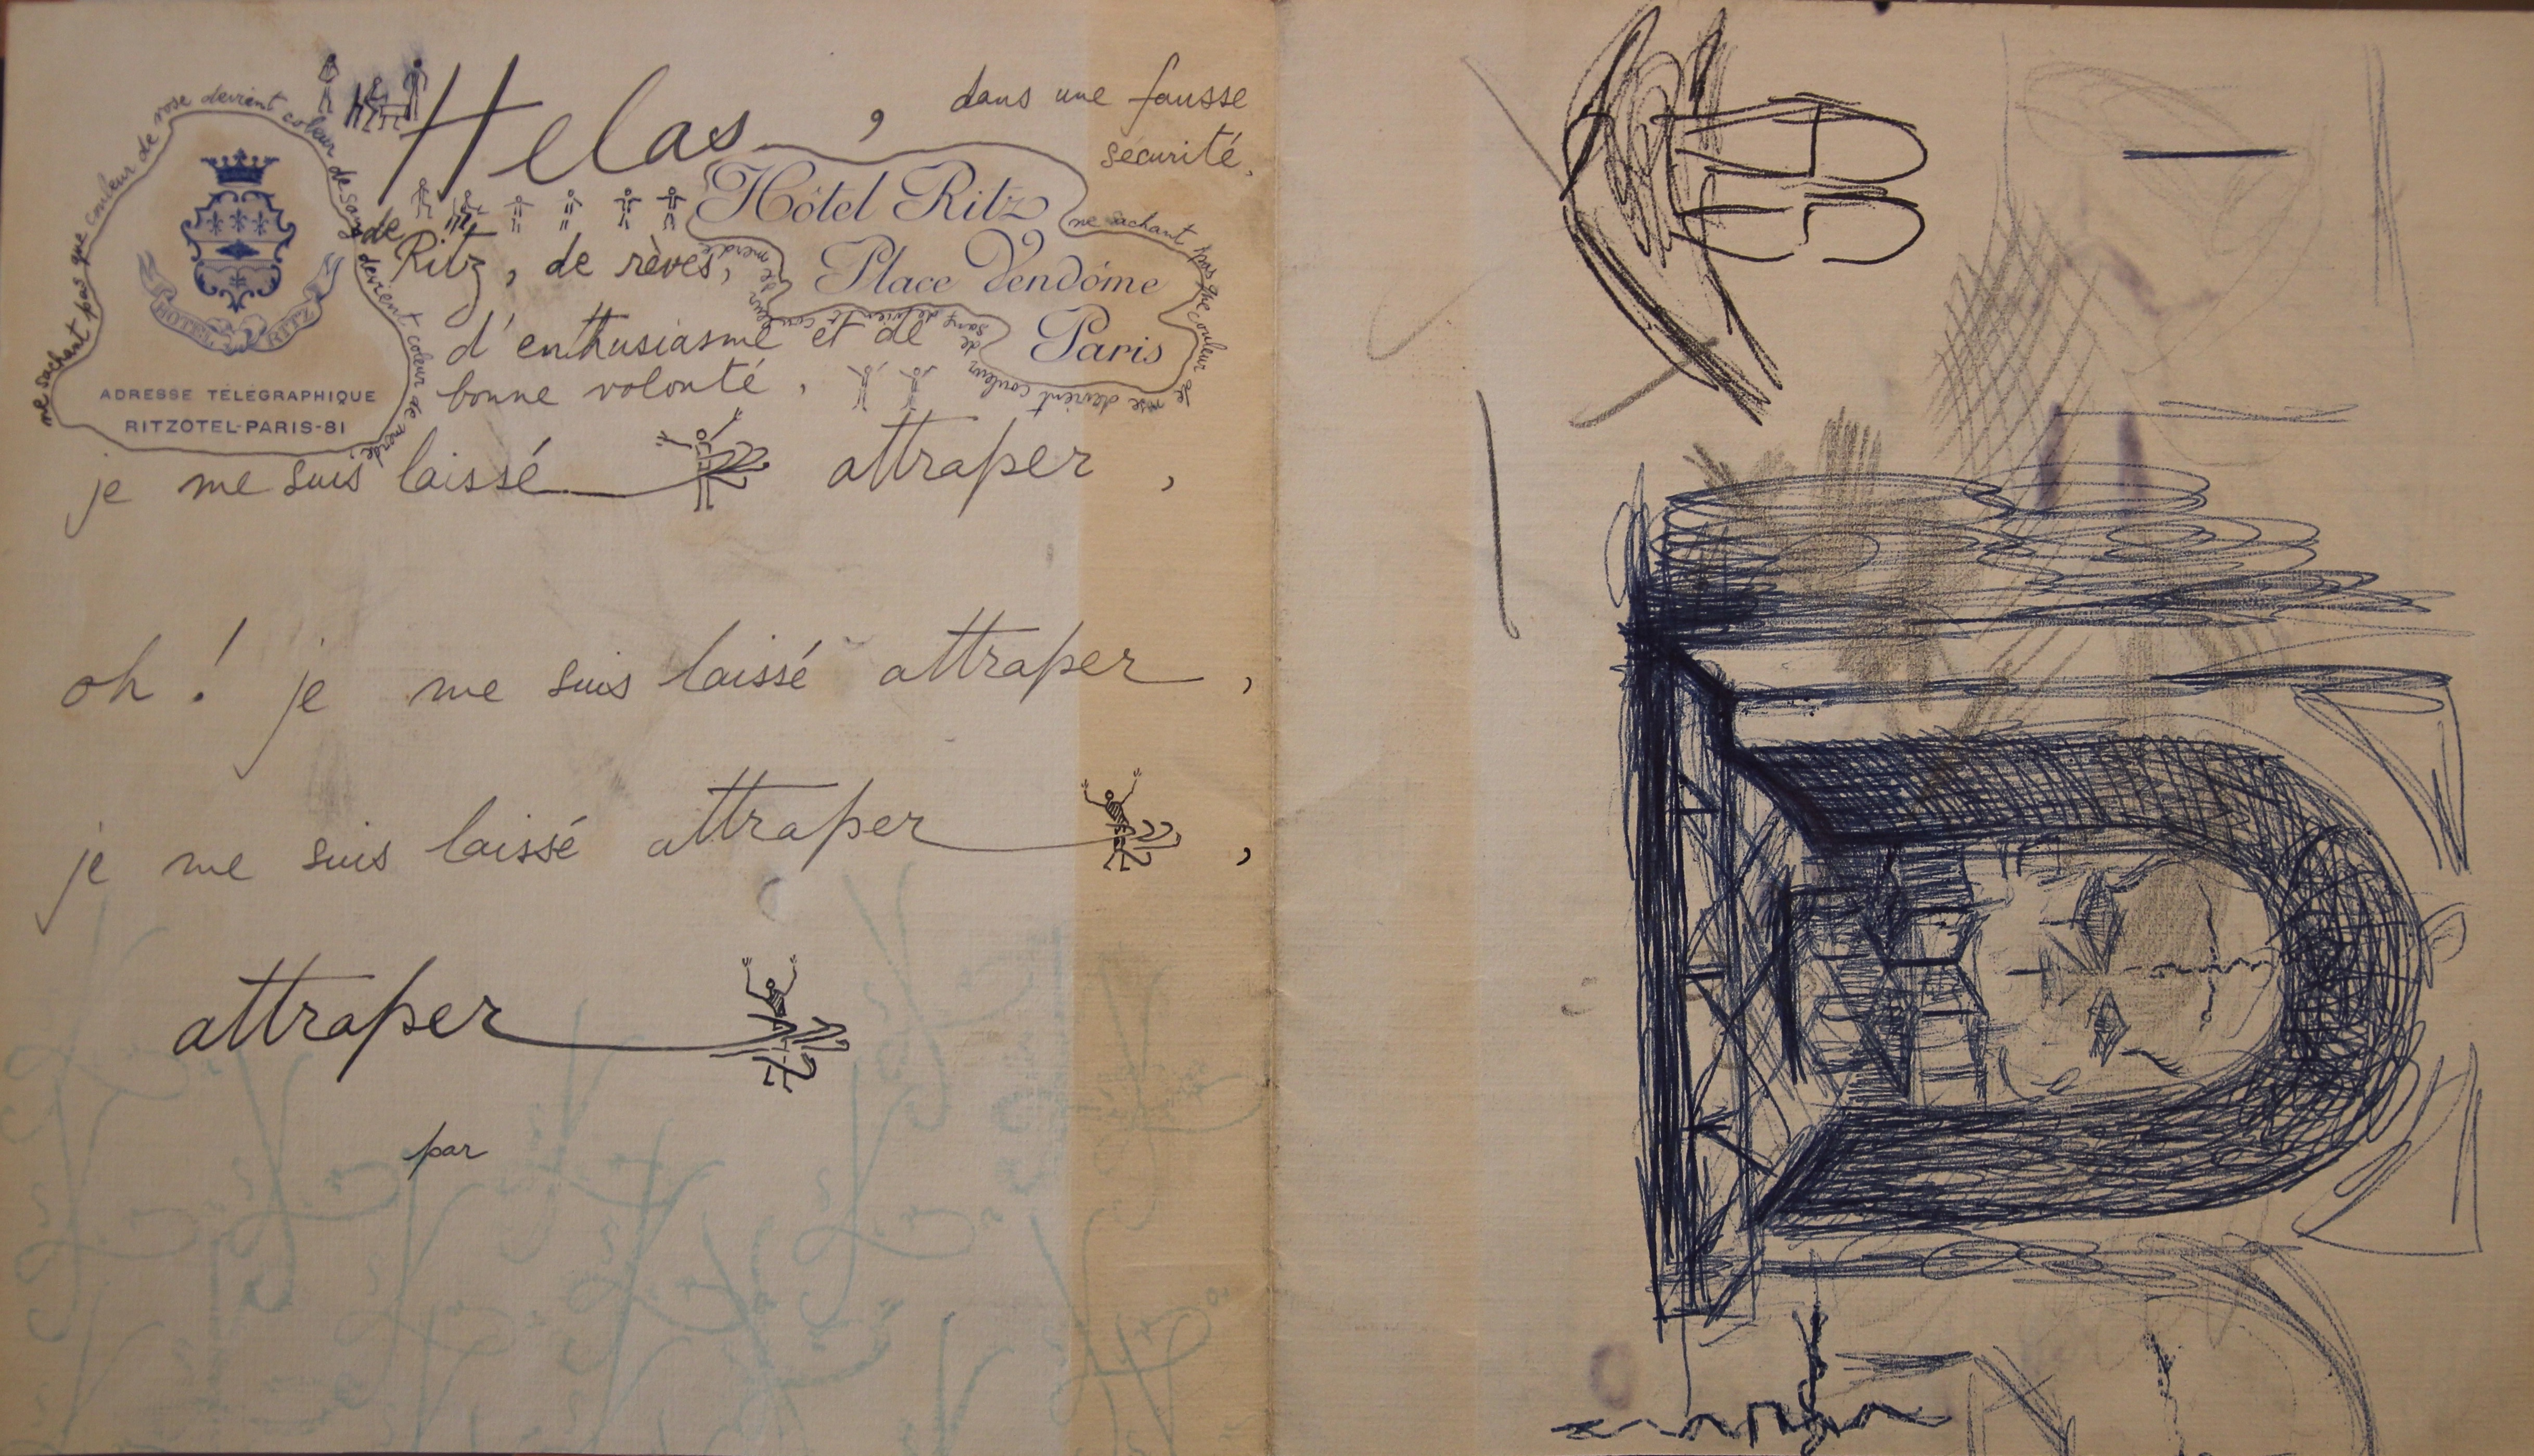 Helas, dans une fausse
sécurité.
de
Ritz, de rèves,
d'enthusiasme et de
bonne volonté,
je me suis laissé attraper,
oh! je me suis laissé attraper,
je me suis laissé attraper,
attraper
par
Hôtel Ritz
Place Vendôme
Paris
HOTEL RITZ
ADRESSE TÉLÉGRAPHIQUE
RITZOTEL-PARIS-81
ne sachant pas que couleur de rose devient coleur de sang devient coleur de merde.
ne sachant pas que couleur de rose devient couleur de sang devient couleur de merde